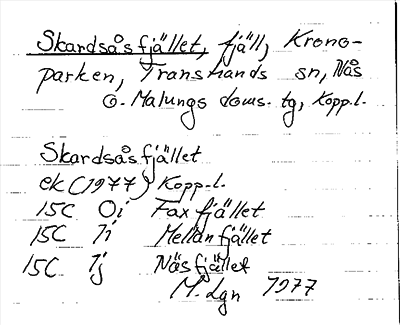 Skardsåsfjället, fjäll, Krono-
parken, Transtrands sn, Nås
o. Malungs doms. tg, Kopp.l.
Skardsåsfjället
ek (1977) Kopp.l.
15C 0i Faxfjället
15C 1i Mellanfjället
15C 1j Näsfjället
M. Lgn 1977